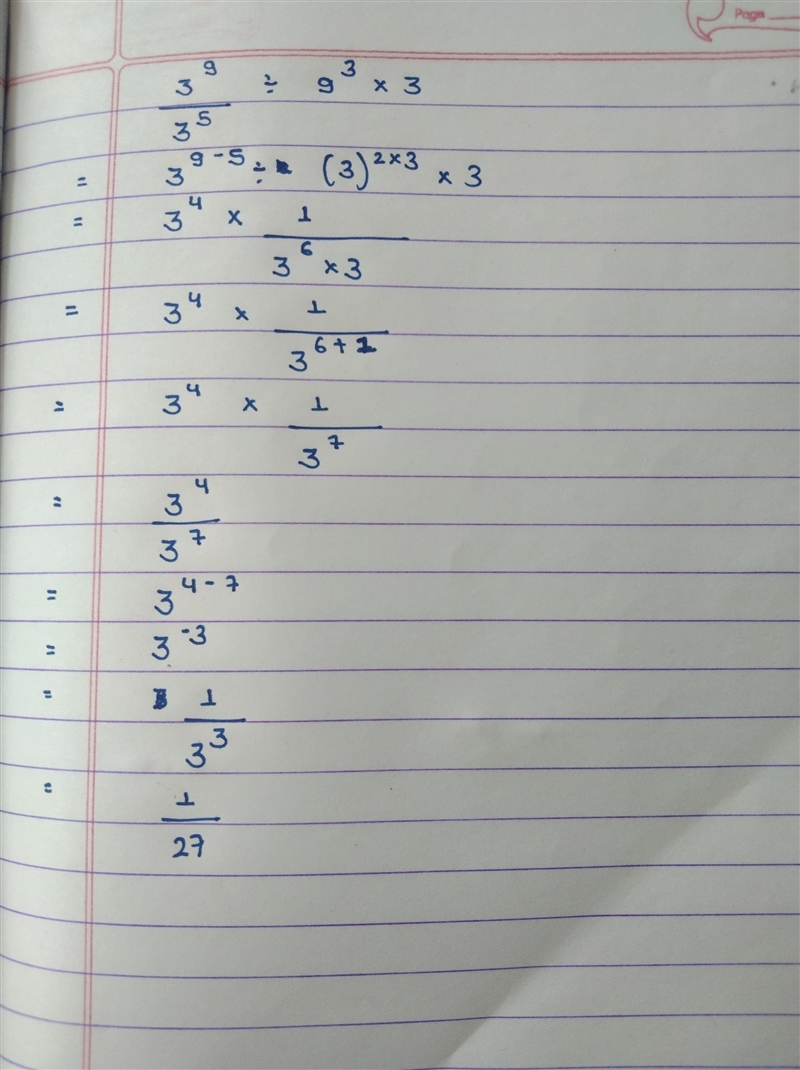 Page
3^9/3^5 ÷ 9^3 × 3
= 3^(9-5) ÷ (3)^(2×3) × 3
= 3^4 × 1/(3^6 × 3)
= 3^4 × 1/3^(6+1)
= 3^4 × 1/3^7
= 3^4/3^7
= 3^(4-7)
= 3^-3
= 1/3^3
= 1/27